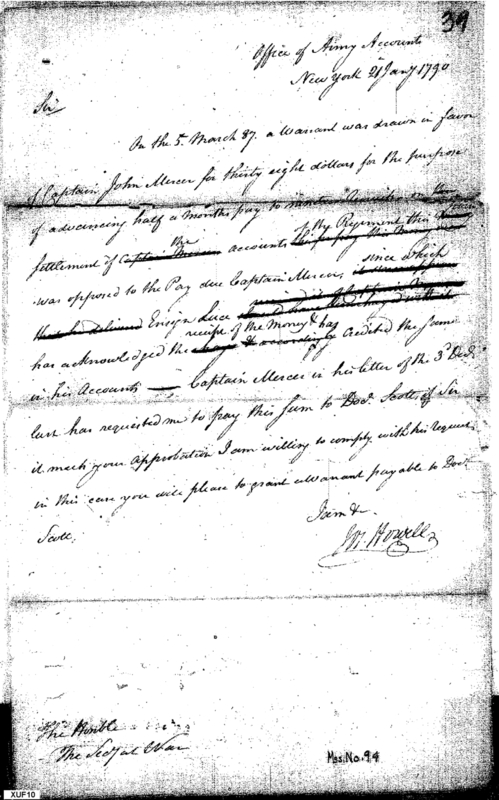 39
Office of Army Accounts
New York 21 Jany 1790
Sir
On the 5 March 87. a Warrant was drawn in favor
of Captain John Mercer for thirty eight dollars for the purpose
of advancing half a months pay to on the
settlement of the accounts of the Regiment this
was opposed to the Pay due Captain Mercer, since which
Ensign Luce
has acknowledged the receipt of the Money & has credited the same
in his Accounts — Captain Mercer in his letter of the 3d Decr
last has requested me to pay this sum to Doct. Scott, if Sir
it meets your approbation I am willing to comply with his request
in this case you will please to grant a Warrant payable to Doct.
Scott.
I am &
Jos. Howell
The Honble
The Secy at War
Mss. No. 94
XUF10